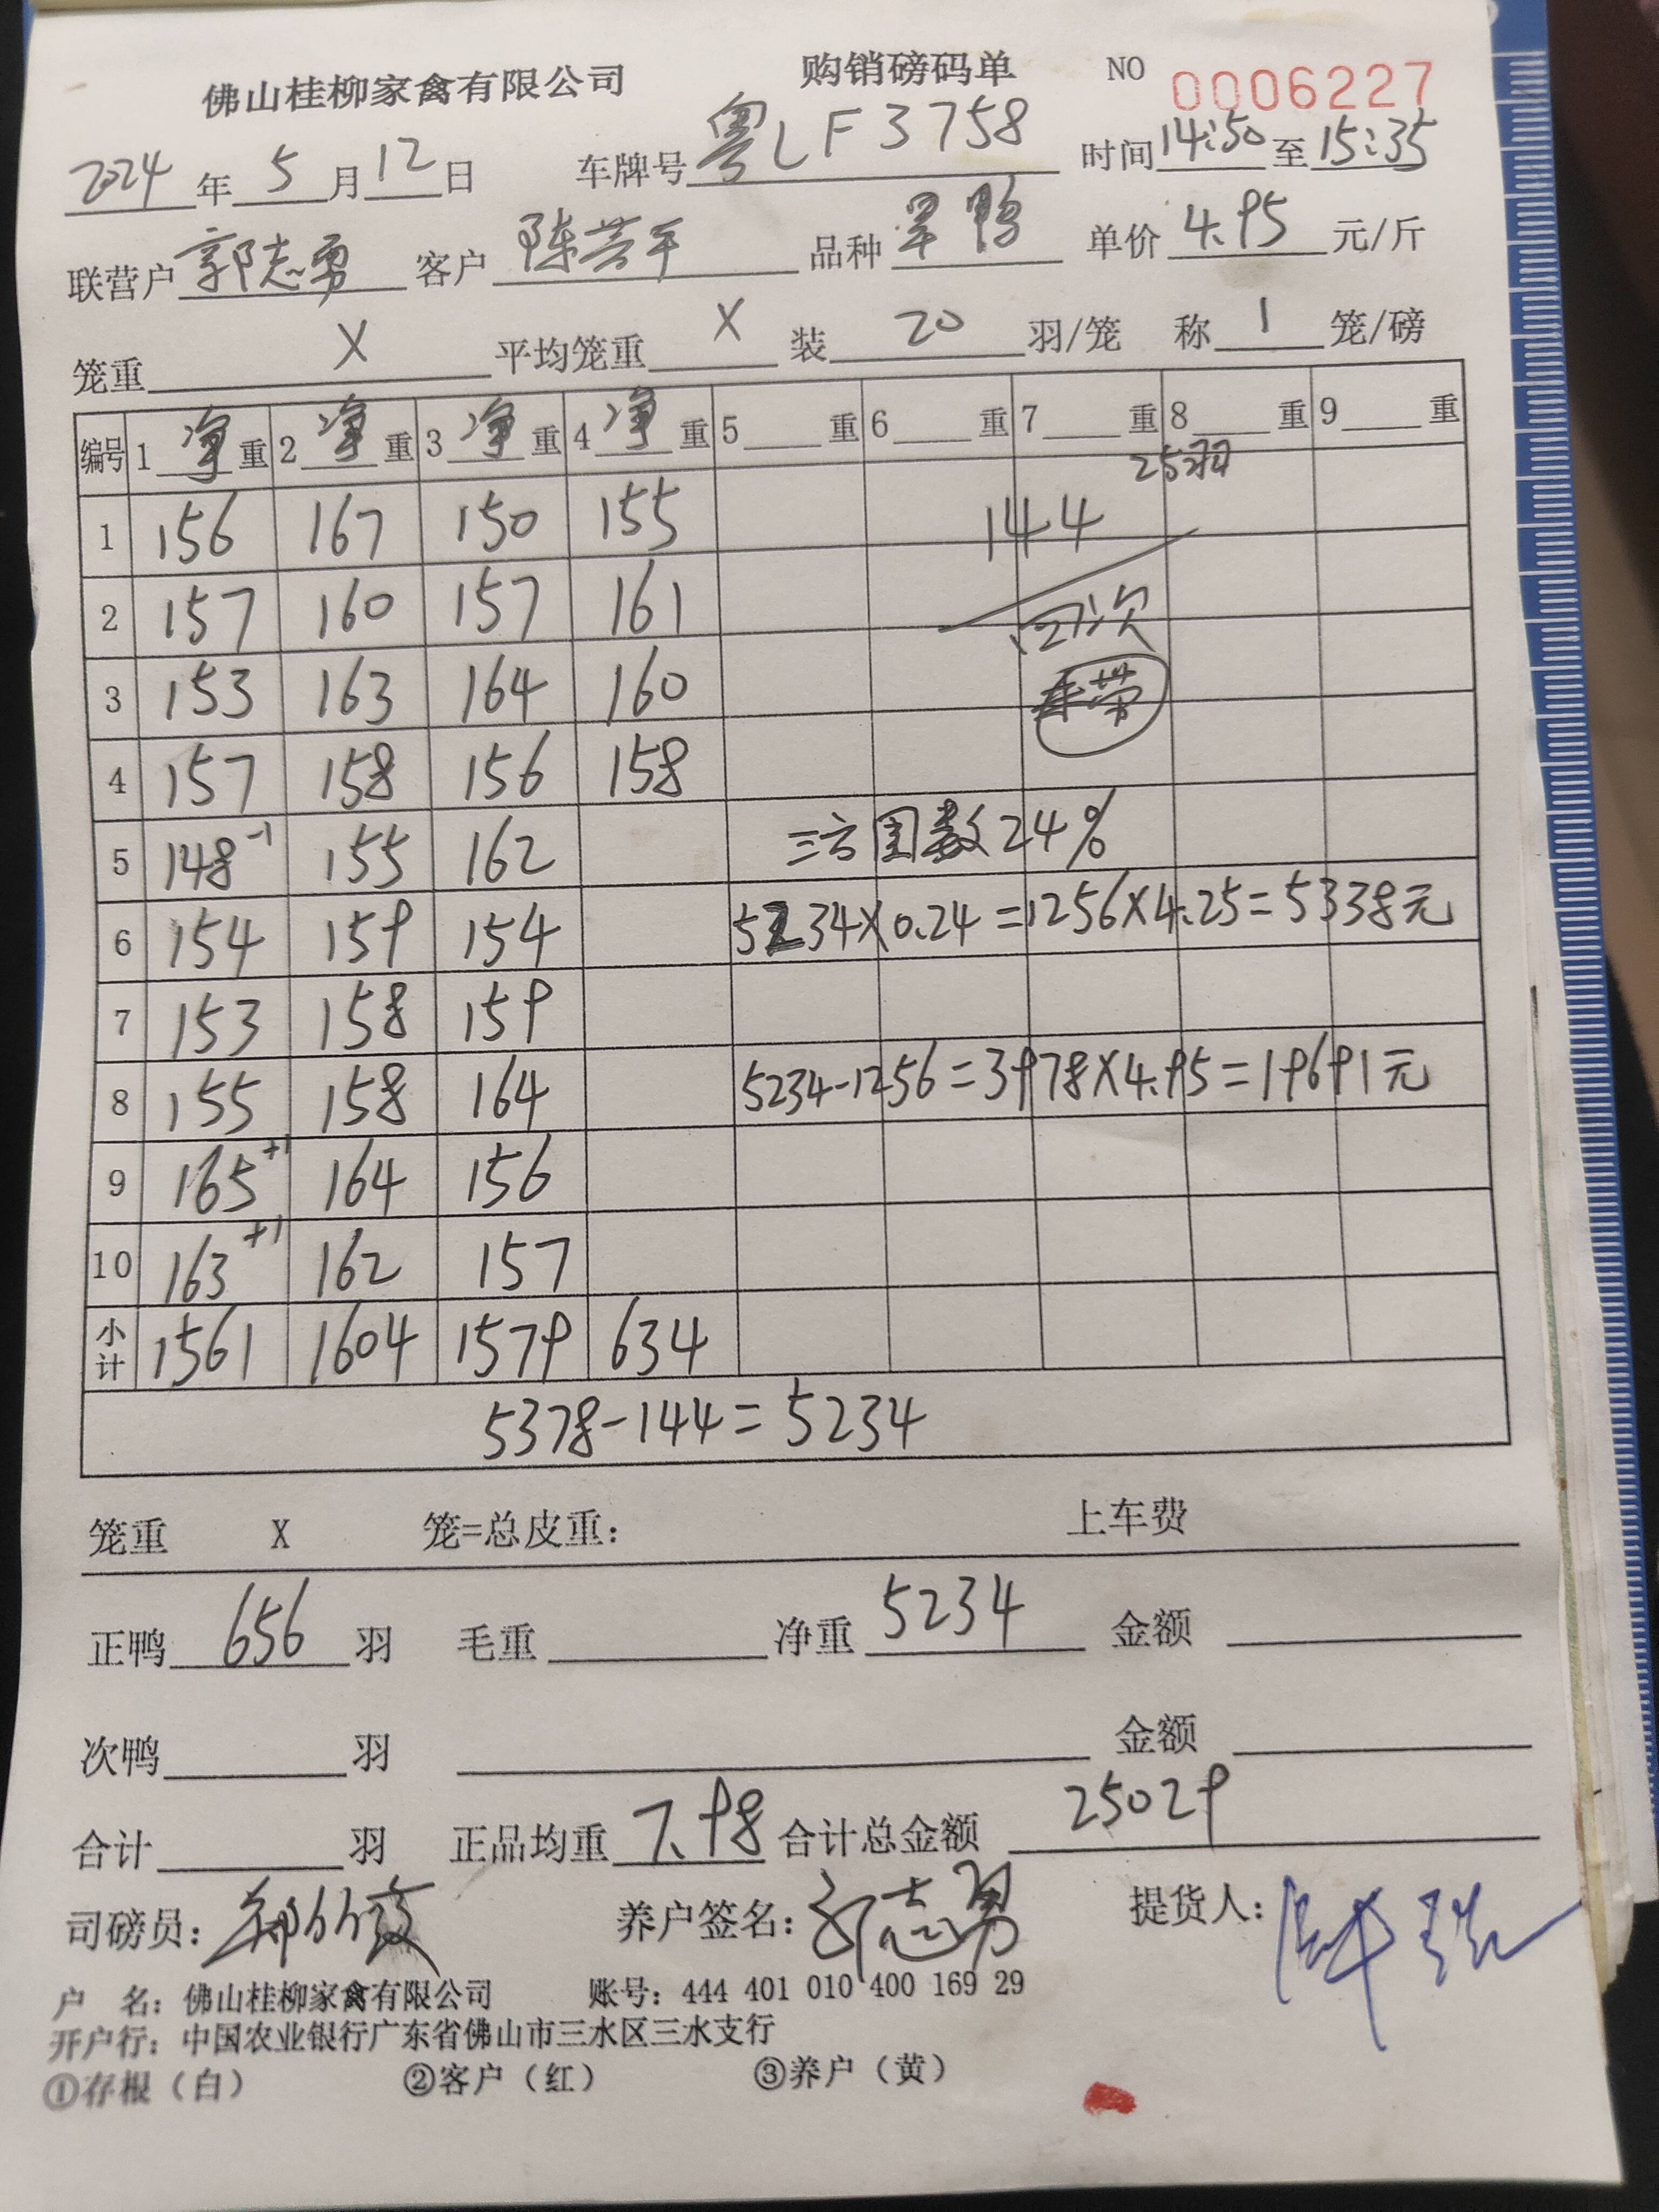 佛山桂柳家禽有限公司 购销磅码单 NO 0006227
2024年5月12日 车牌号粤LF3758 时间14:50至15:35
联营户郭志勇 客户陈芸平 品种 单价4.95元/斤
笼重X 平均笼重X 装20羽/笼 称1笼/磅
编号 1净重 2净重 3净重 4净重 5重 6重 7重 8重 9重
25羽
1 156 167 150 155 144
2 157 160 157 161 次
3 153 163 164 160
4 157 158 156 158
5 148-1 155 162 数24%
6 154 159 154 5234X0.24=1256X4.25=5338元
7 153 158 159
8 155 158 164 5234-1256=3978X4.95=19691元
9 165+1 164 156
10 163+1 162 157
小计 1561 1604 1579 634
5378-144=5234
笼重 X 笼=总皮重： 上车费
正鸭656羽 毛重 净重5234 金额
次鸭 羽 金额
合计 羽 正品均重7.98 合计总金额25029
司磅员： 养户签名：郭志勇 提货人：
户 名：佛山桂柳家禽有限公司 账号：444 401 010 400 169 29
开户行：中国农业银行广东省佛山市三水区三水支行
①存根（白） ②客户（红） ③养户（黄）